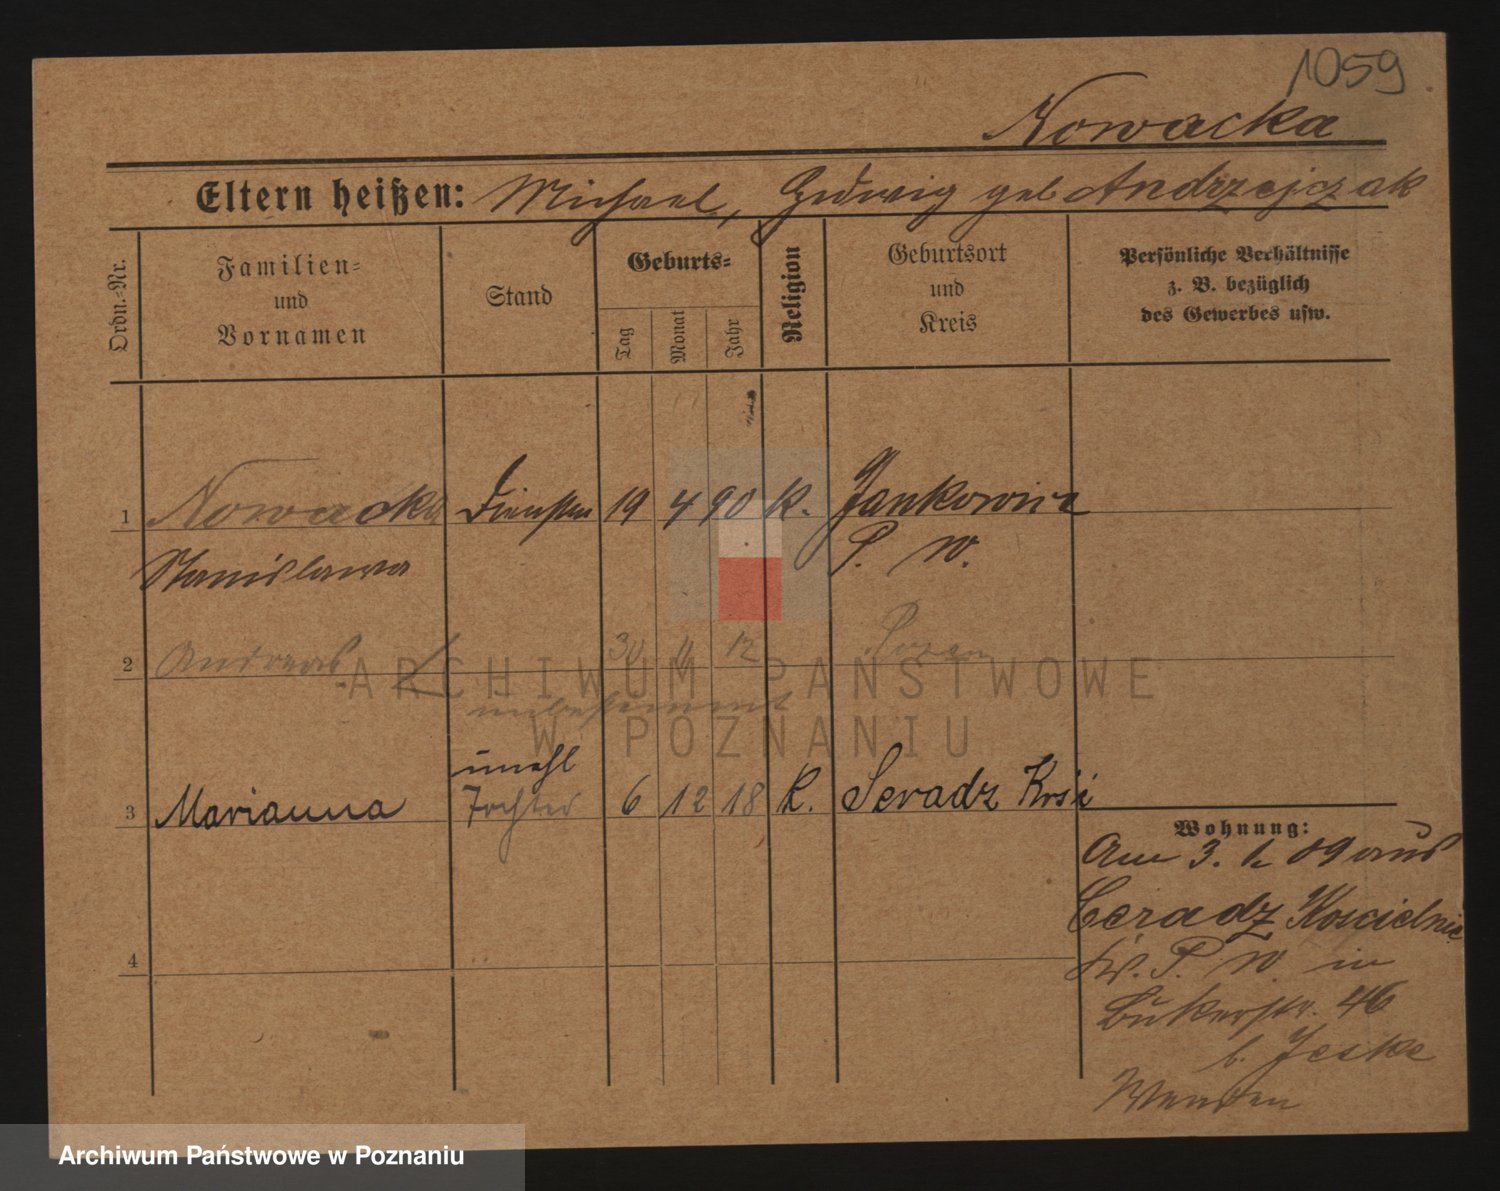 1059
Nowacka
Eltern heißen: Michael, Hedwig geb Andrzejczak
Ordn.=Nr.
Familien=
und
Vornamen
Stand
Geburts=
Tag
Monat
Jahr
Religion
Geburtsort
und
Kreis
Persönliche Verhältnisse
z. B. bezüglich
des Gewerbes usw.
1 Nowacka 19 4 90 K. Jankowice
Stanislawa P. W.
2 Andreas 30 11 12 Posen
unbestimmt
unehl
3 Marianna Tochter 6 12 18 K. Seradz
Wohnung:
Am 3. 09 aus
Ceradz Koscielnie
Kr. P. W. in
Bukerstr. 46
b. Jeske
4
ARCHIWUM PAŃSTWOWE
W POZNANIU
Archiwum Państwowe w Poznaniu